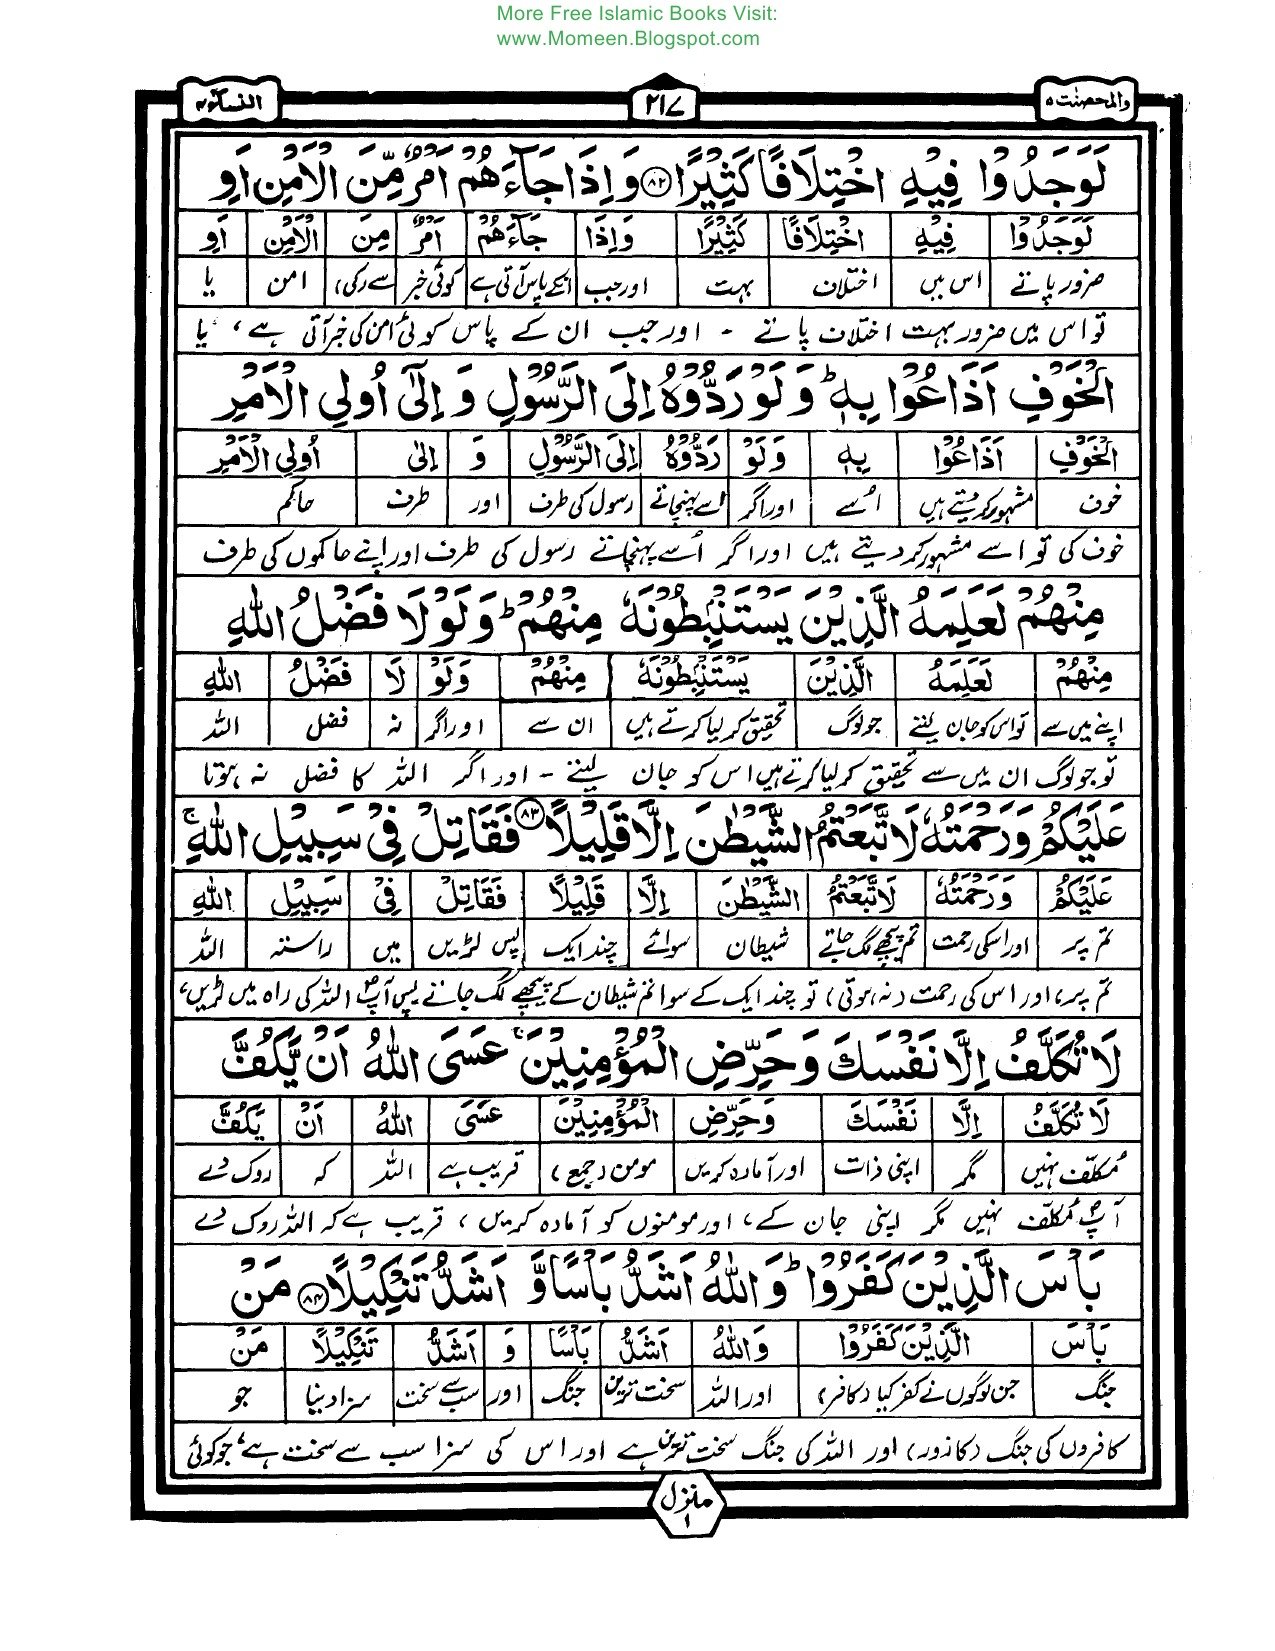 More Free Islamic Books Visit:
www.Momeen.Blogspot.com
والمحصنت ۵
۲۱۷
النسآء ۴
لَوَجَدُوْا فِيْهِ اخْتِلَافًا كَثِيْرًا ۸۲ وَاِذَا جَآءَهُمْ اَمْرٌ مِّنَ الْاَمْنِ اَوِ
لَوَجَدُوْا فِيْهِ اخْتِلَافًا كَثِيْرًا وَاِذَا جَآءَهُمْ اَمْرٌ مِنَ الْاَمْنِ اَوِ
ضرور پاتے اس میں اختلاف بہت اور جب انکے پاس آتی ہے کوئی خبر سے (کی) امن یا
تو اس میں ضرور بہت اختلاف پاتے - اور جب ان کے پاس کوئی امن کی خبر آتی ہے، یا
الْخَوْفِ اَذَاعُوْا بِهٖ ؕ وَلَوْ رَدُّوْهُ اِلَى الرَّسُوْلِ وَ اِلٰٓى اُولِي الْاَمْرِ
الْخَوْفِ اَذَاعُوْا بِهٖ وَلَوْ رَدُّوْهُ اِلَى الرَّسُوْلِ وَ اِلٰى اُولِي الْاَمْرِ
خوف مشہور کر دیتے ہیں اسے اور اگر اسے پہنچاتے رسول کی طرف اور طرف حاکم
خوف کی تو اسے مشہور کر دیتے ہیں اور اگر اُسے پہنچاتے رسول کی طرف اور اپنے حاکموں کی طرف
مِنْهُمْ لَعَلِمَهُ الَّذِيْنَ يَسْتَنْۢبِطُوْنَهٗ مِنْهُمْ ؕ وَلَوْ لَا فَضْلُ اللّٰهِ
مِنْهُمْ لَعَلِمَهُ الَّذِيْنَ يَسْتَنْۢبِطُوْنَهٗ مِنْهُمْ وَلَوْ لَا فَضْلُ اللّٰهِ
اپنے میں سے تو اس کو جان لیتے جو لوگ تحقیق کر لیا کرتے ہیں ان سے اور اگر نہ فضل اللہ
تو جو لوگ ان میں سے تحقیق کر لیا کرتے ہیں اس کو جان لیتے - اور اگر اللہ کا فضل نہ ہوتا
عَلَيْكُمْ وَرَحْمَتُهٗ لَاتَّبَعْتُمُ الشَّيْطٰنَ اِلَّا قَلِيْلًا ۸۳ فَقَاتِلْ فِيْ سَبِيْلِ اللّٰهِ ۚ
عَلَيْكُمْ وَرَحْمَتُهٗ لَاتَّبَعْتُمُ الشَّيْطٰنَ اِلَّا قَلِيْلًا فَقَاتِلْ فِيْ سَبِيْلِ اللّٰهِ
تم پر اور اسکی رحمت تم پیچھے لگ جاتے شیطان سوائے چند ایک پس لڑیں میں راستہ اللہ
تم پر، اور اس کی رحمت (نہ ہوتی) تو چند ایک کے سوا تم شیطان کے پیچھے لگ جاتے پس آپؐ اللہ کی راہ میں لڑیں،
لَا تُكَلَّفُ اِلَّا نَفْسَكَ وَحَرِّضِ الْمُؤْمِنِيْنَ ۚ عَسَى اللّٰهُ اَنْ يَّكُفَّ
لَا تُكَلَّفُ اِلَّا نَفْسَكَ وَحَرِّضِ الْمُؤْمِنِيْنَ عَسَى اللّٰهُ اَنْ يَكُفَّ
مُکلّف نہیں مگر اپنی ذات اور آمادہ کریں مومن (جمع) قریب ہے اللہ کہ روک دے
آپؐ مُکلّف نہیں مگر اپنی جان کے، اور مومنوں کو آمادہ کریں، قریب ہے کہ اللہ روک دے
بَاْسَ الَّذِيْنَ كَفَرُوْا ؕ وَاللّٰهُ اَشَدُّ بَاْسًا وَّ اَشَدُّ تَنْكِيْلًا ۸۴ مَنْ
بَاْسَ الَّذِيْنَ كَفَرُوْا وَاللّٰهُ اَشَدُّ بَاْسًا وَ اَشَدُّ تَنْكِيْلًا مَنْ
جنگ جن لوگوں نے کفر کیا (کافر) اور اللہ سخت ترین جنگ اور سب سے سخت سزا دینا جو
کافروں کی جنگ (کا زور) اور اللہ کی جنگ سخت ترین ہے اور اس کی سزا سب سے سخت ہے، جو کوئی
منزل ۱